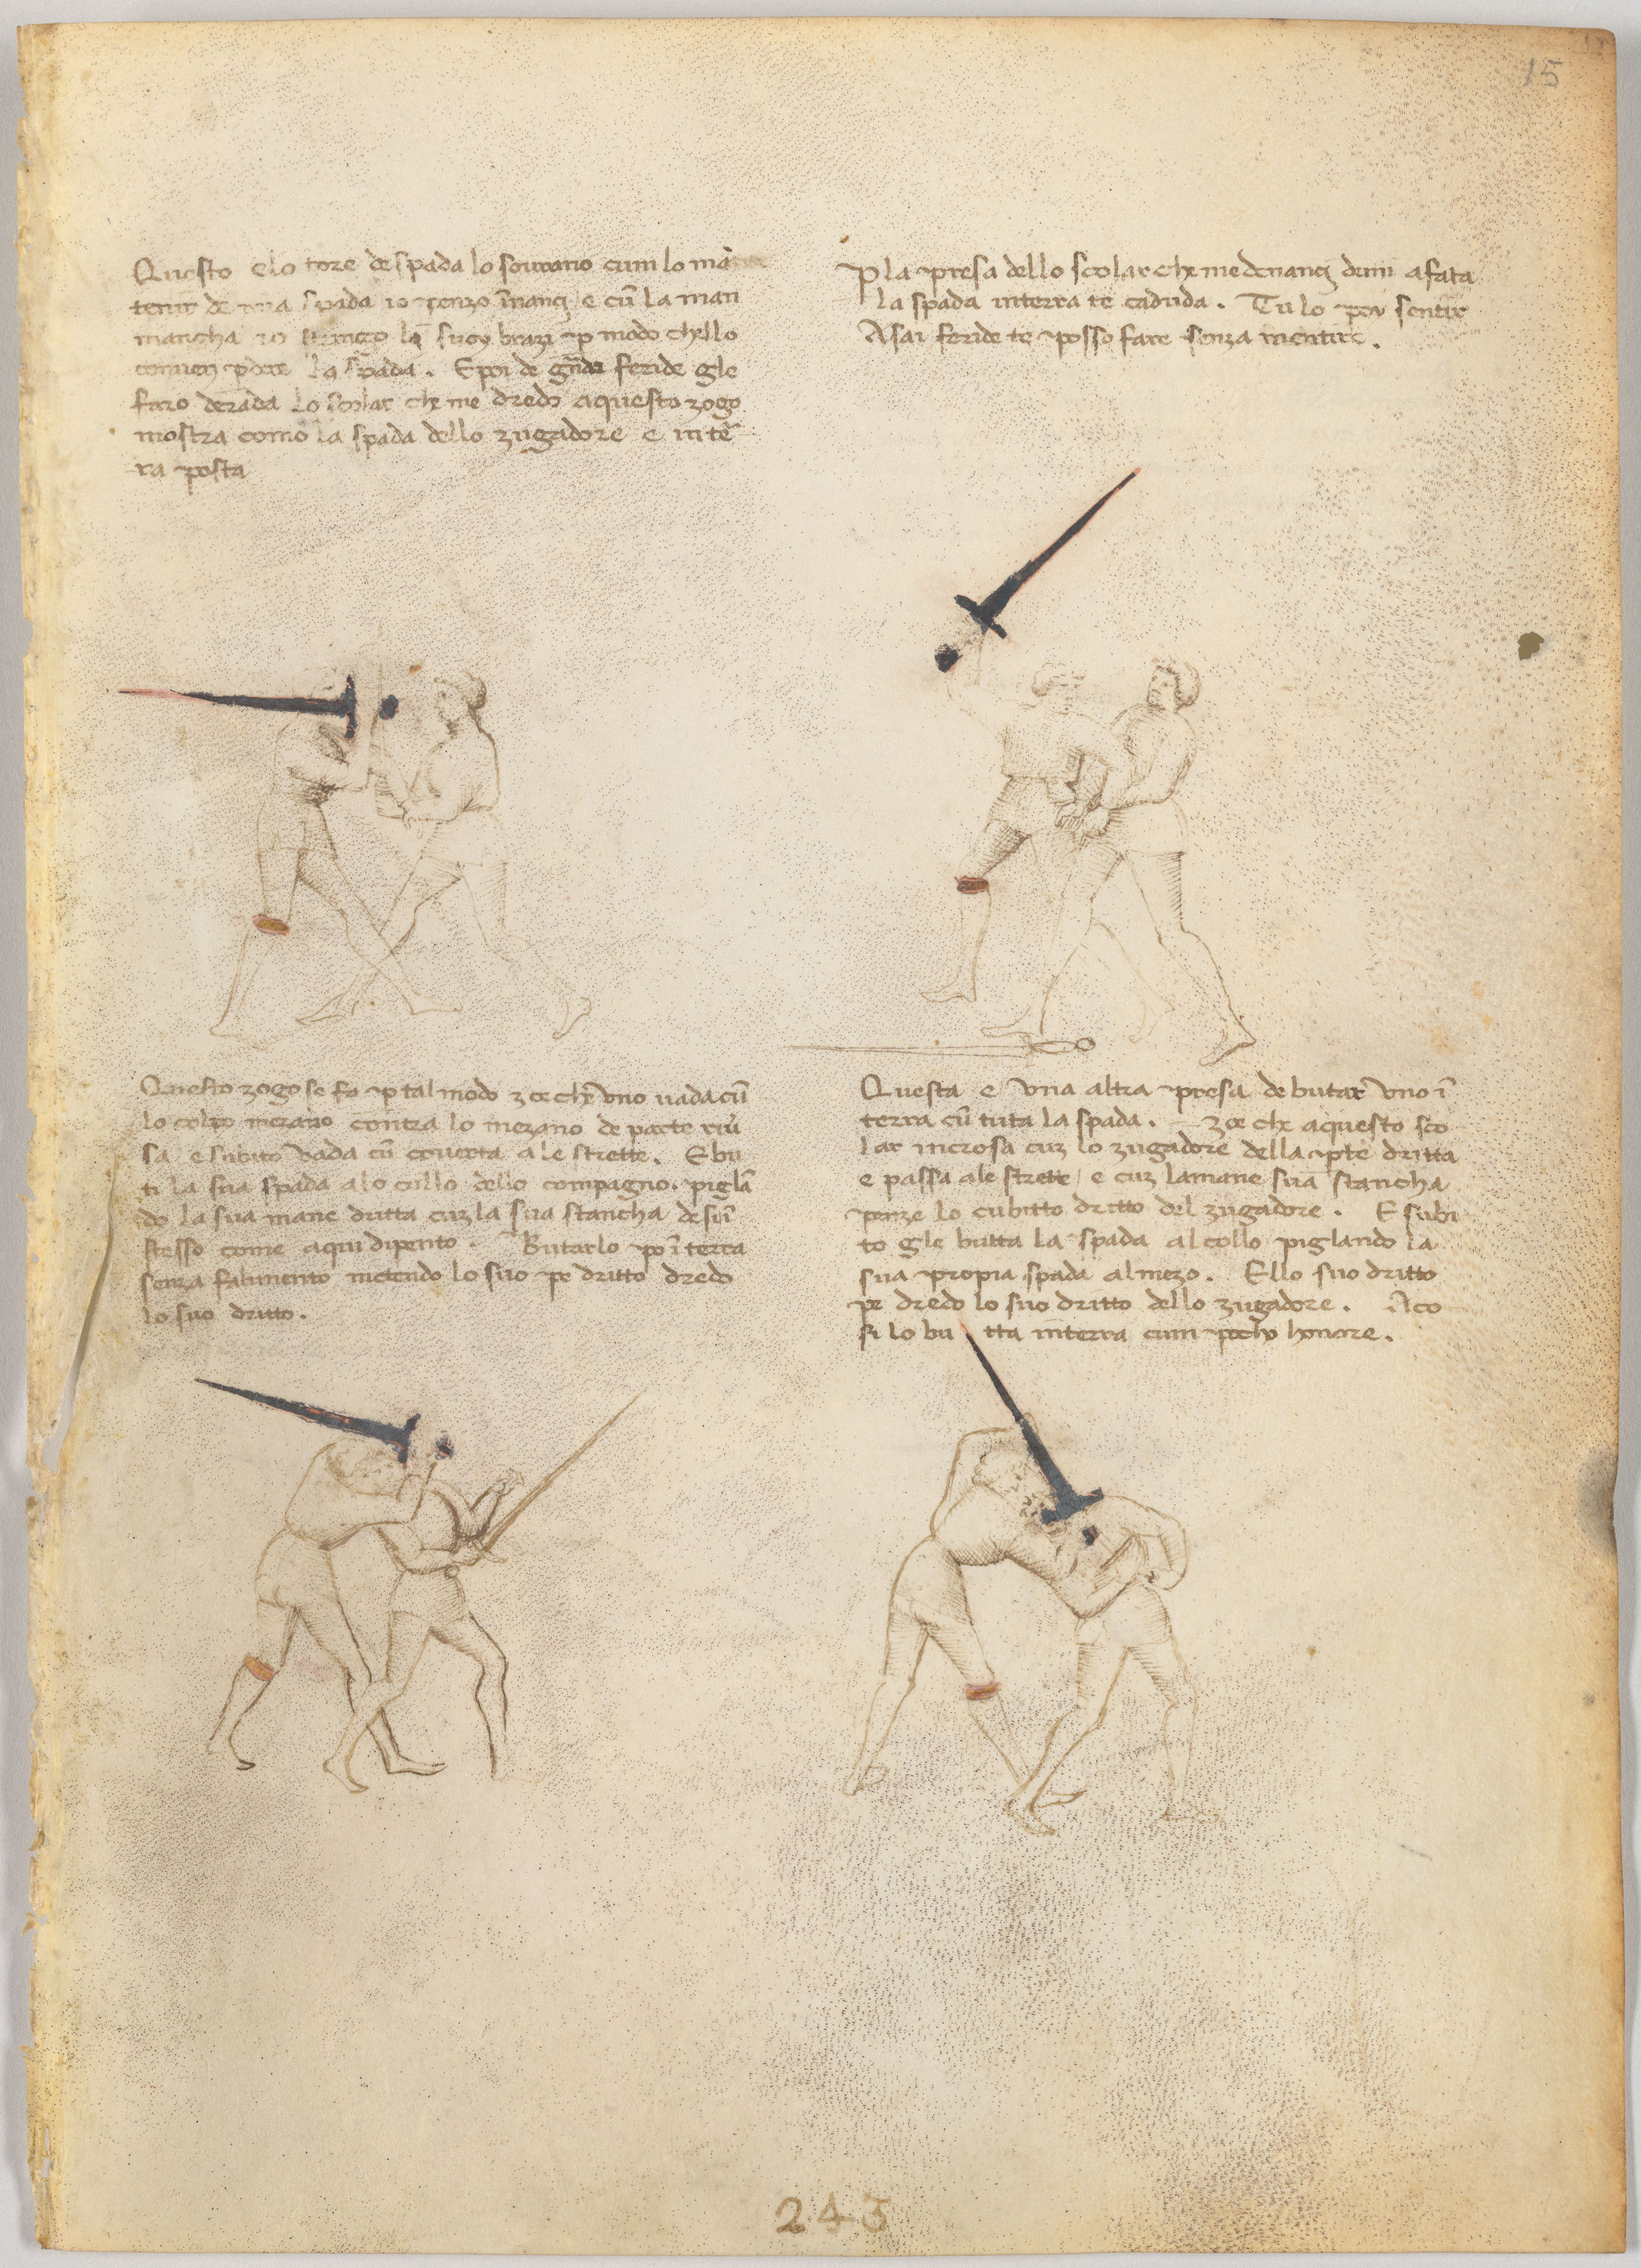 15
Questo elo tore de spada lo sourano cum lo mã
tenir de mia spada io penzo īnanci e cū la man
mancha io strengo li suoy brazi p modo chello
conuen pdere la spada. Epoi de grādi feride gle
faro derada lo scolar che me dredo aquesto zogo
mostra como la spada dello zugadore e in tē
ra posta
P la presa dello scolar che me denanci demi afata
la spada interra te caduda. Tu lo poy sentir
Asai feride te posso fare senza mentire.
Questo zogo se fa p tal modo zoe che vno uada cū
lo colpo mezano contra lo mezano de parte riū
sa e subito vada cū couerta a le strette. E bu
ti la sua spada alo collo dello compagno. piglā
do la sua mane dritta cuz la sua stancha de sū
stesso come aqui dipento. Butarlo po ī terra
senza falimento metendo lo suo pe dritto dredo
lo suo dritto.
Questa e vna altra presa de butar vno ī
terra cū tuta la spada. zoe che aquesto sco
lar incrosa cuz lo zugadore della pte dritta
e passa ale strete / e cuz la mane sua stancha
penze lo cubitto dritto del zugadore. E subi
to gle butta la spada al collo piglando la
sua propia spada al mezo. Ello suo dritto
pe dredo lo suo dritto dello zugadore. Aco
si lo bu tta interra cum pocho honore.
243